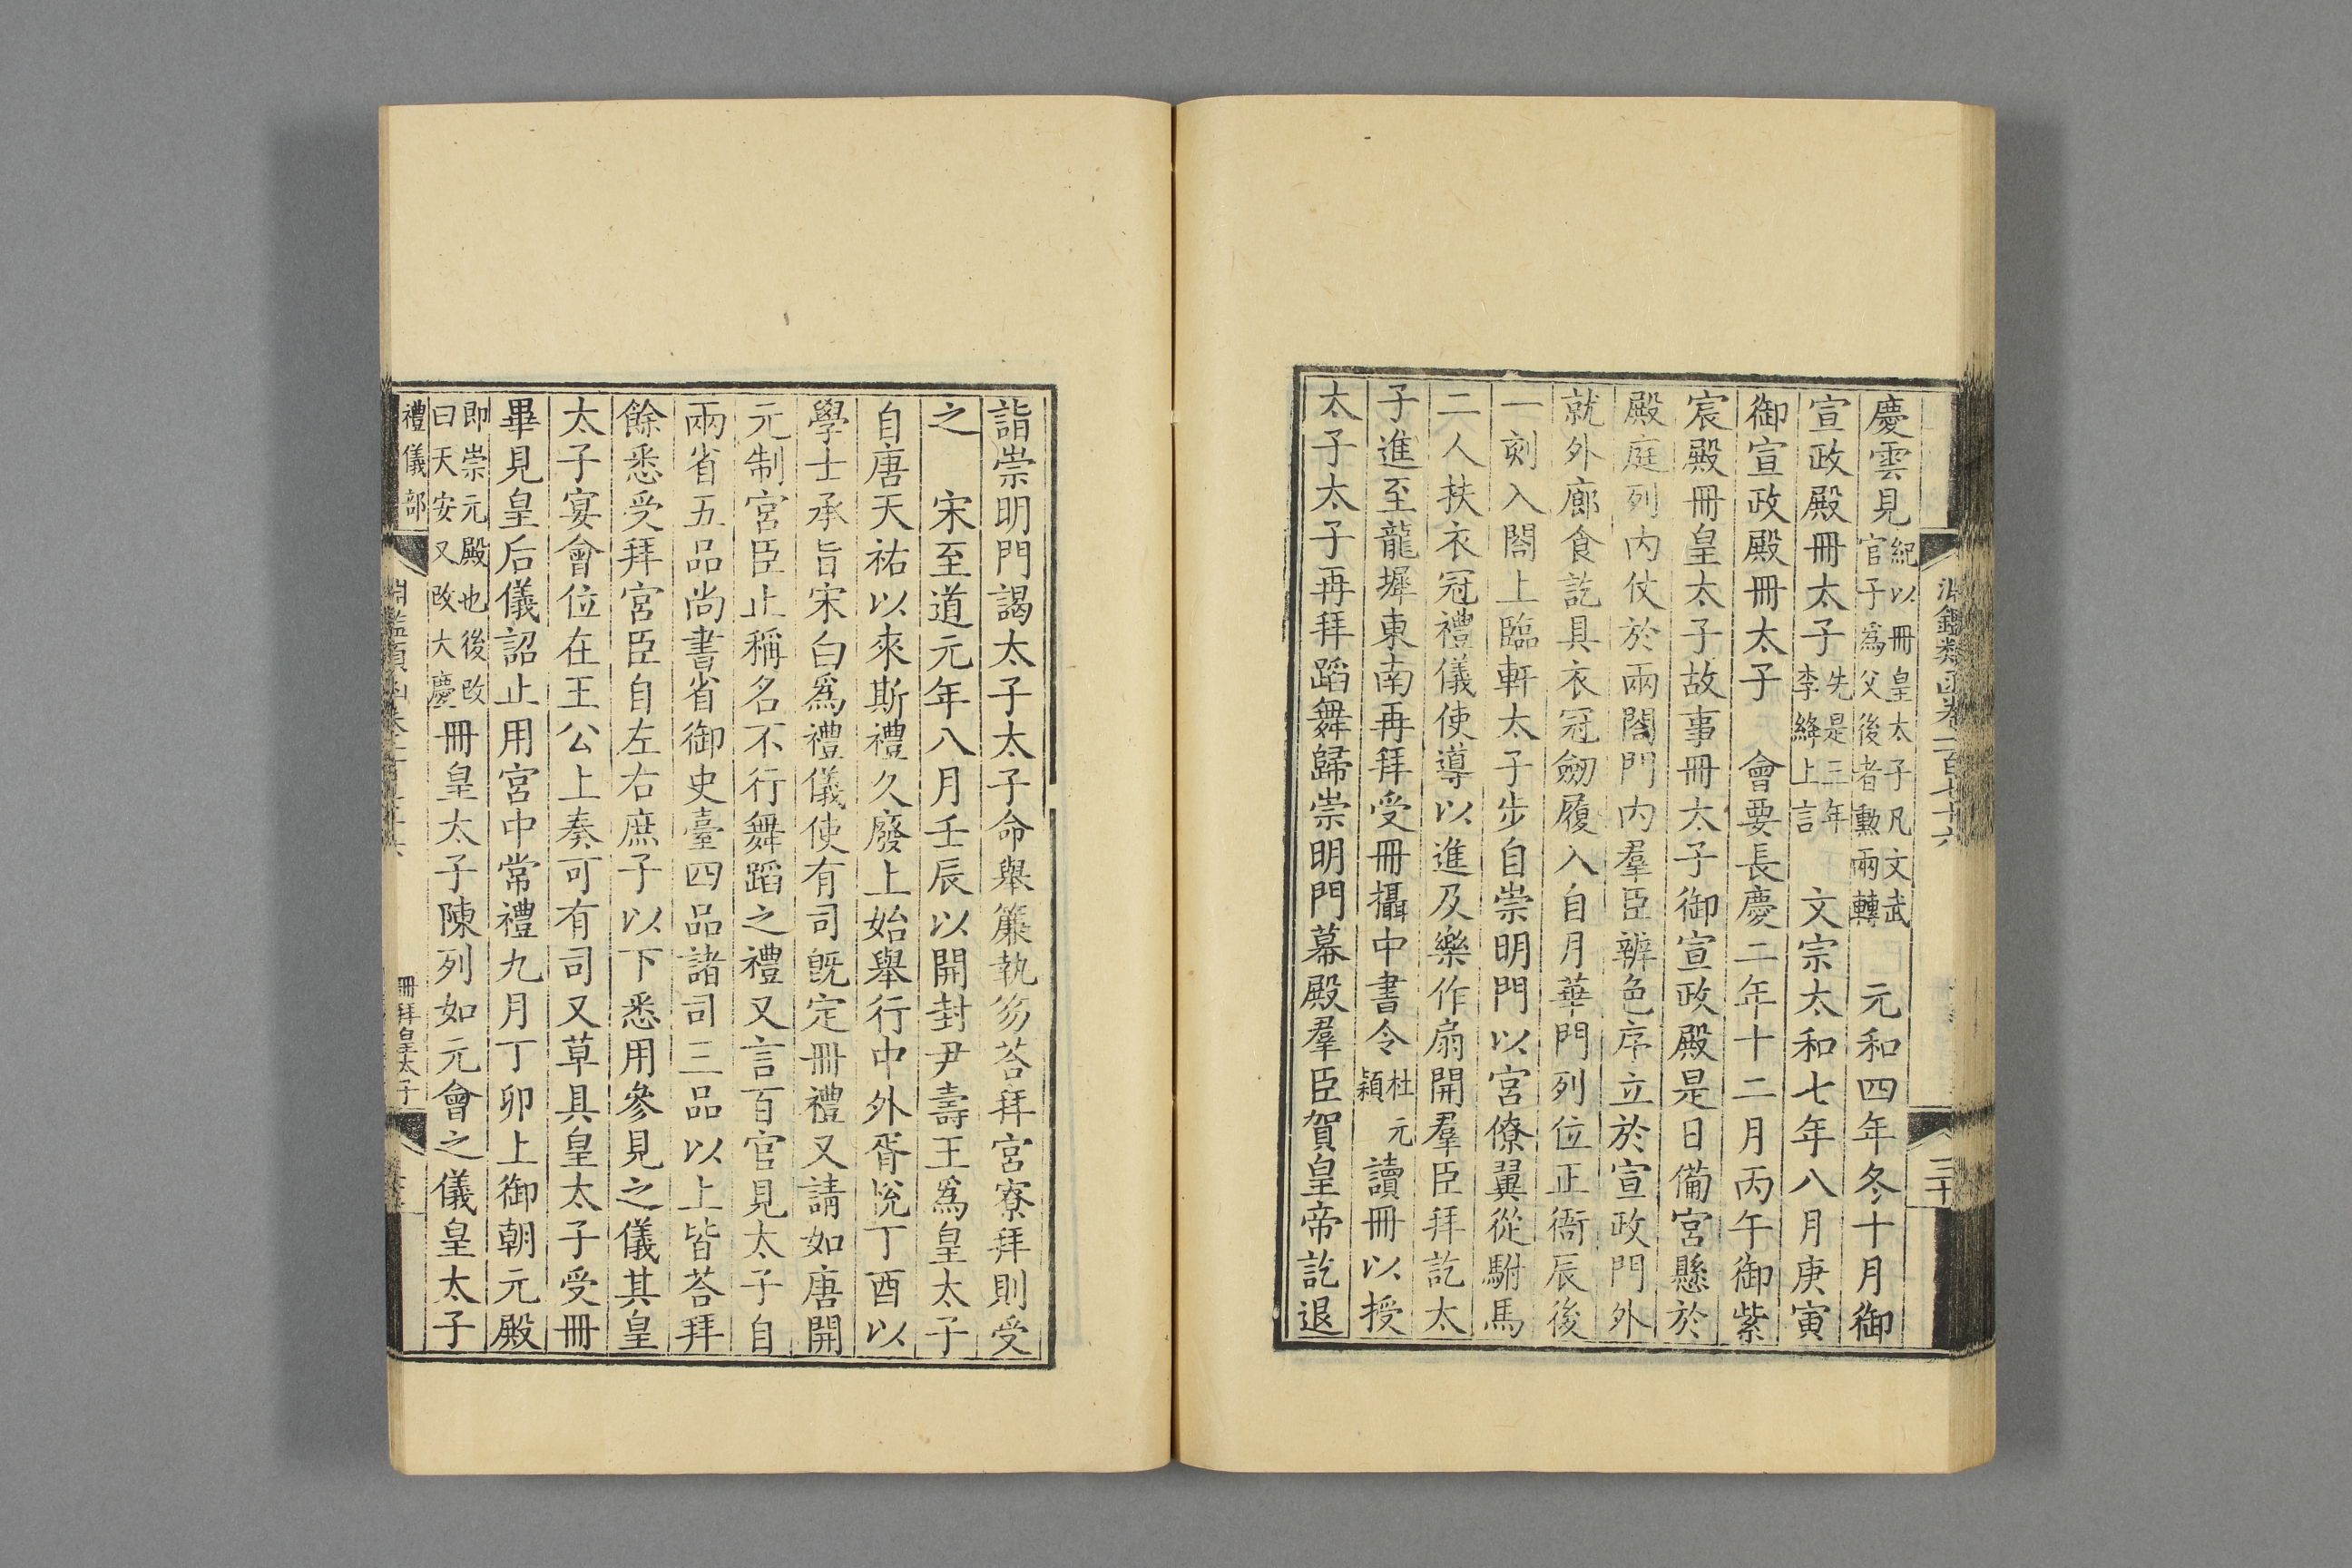 慶雲見紀以冊皇太子凡文武官子為父後者勲兩轉　元和四年冬十月御
宣政殿冊太子先是三年李絳上言　文宗太和七年八月庚寅
御宣政殿冊太子　會要長慶二年十二月丙午御紫
宸殿冊皇太子故事冊太子御宣政殿是日備宮懸於
殿庭列内仗於兩閤門内羣臣辨色序立於宣政門外
就外廊食訖具衣冠劒履入自月華門列位正衙辰後
一刻入閤上臨軒太子步自崇明門以宮僚翼從駙馬
二人扶衣冠禮儀使導以進及樂作扇開羣臣拜訖太
子進至龍墀東南再拜受冊攝中書令杜元穎讀冊以授
太子太子再拜蹈舞歸崇明門幕殿羣臣賀皇帝訖退
詣崇明門謁太子太子命舉簾執笏荅拜宮寮拜則受
之　宋至道元年八月壬辰以開封尹壽王爲皇太子
自唐天祐以來斯禮久廢上始舉行中外胥悅丁酉以
學士承旨宋白爲禮儀使有司既定冊禮又請如唐開
元制宮臣止稱名不行舞蹈之禮又言百官見太子自
兩省五品尚書省御史臺四品諸司三品以上皆荅拜
餘悉受拜宮臣自左右庶子以下悉用參見之儀其皇
太子宴會位在王公上奏可有司又草具皇太子受冊
畢見皇后儀詔止用宮中常禮九月丁卯上御朝元殿
即崇元殿也後改曰天安又改大慶冊皇太子陳列如元會之儀皇太子
禮儀部
冊拜皇太子